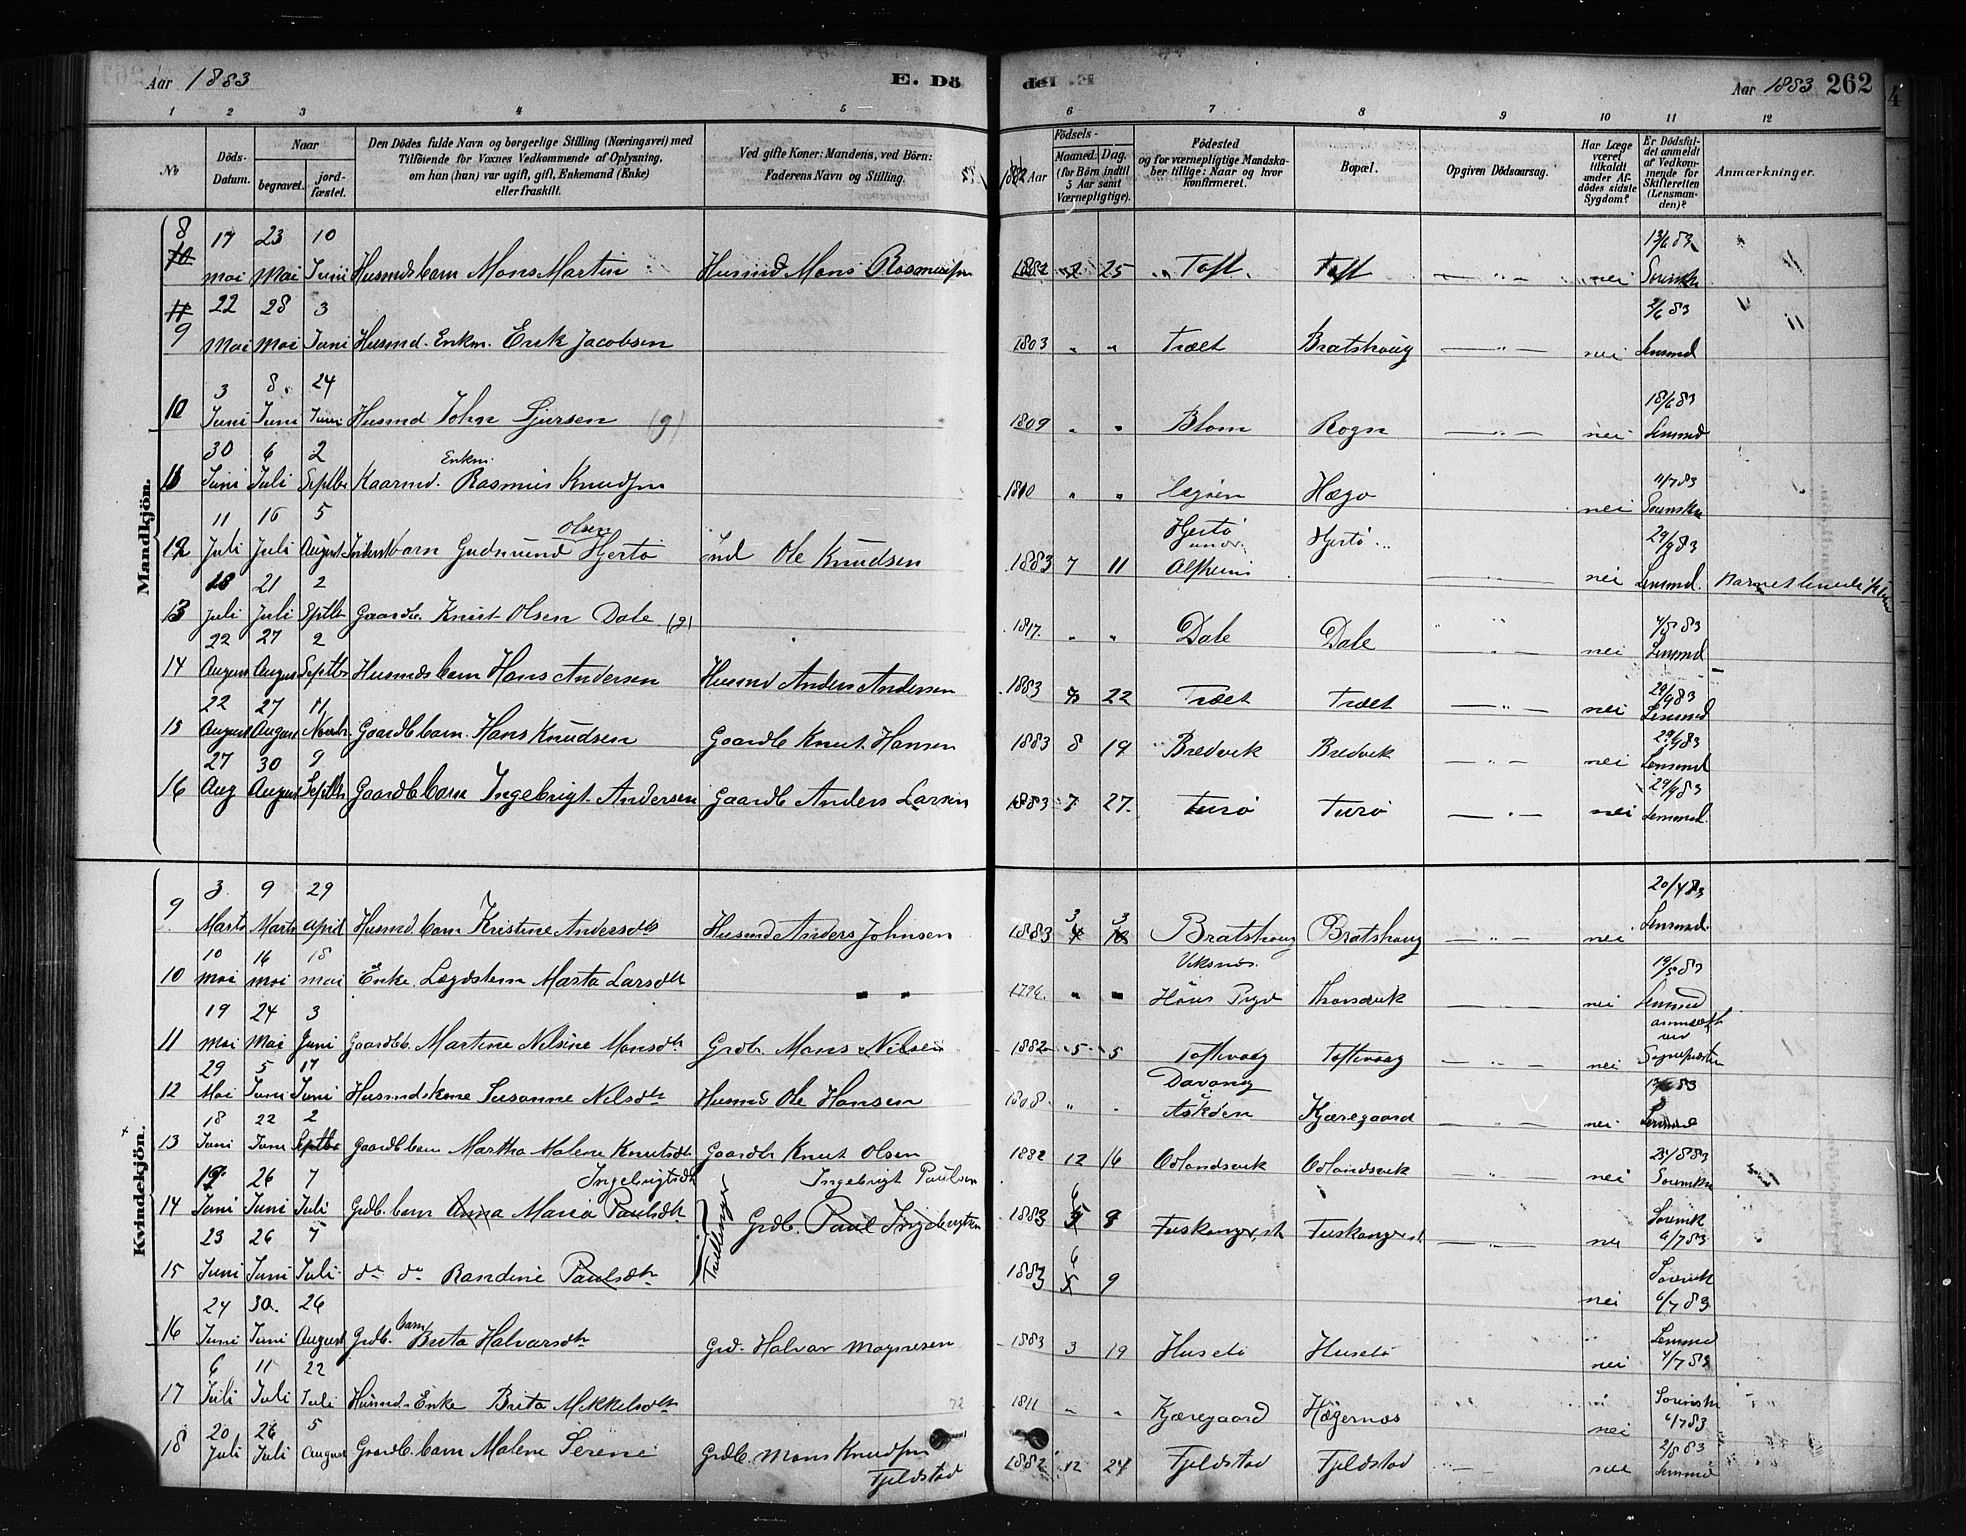 Aar 1883 E. Dö
del Aar 1883 262
1 2 3 4 5
6 7 8 9 10 11 12
No
Döds-Datum.
Naar
begravet.
jord-fæstet.
Den Dödes fulde Navn og borgerlige Stilling (Næringsvei) med
Tilföiende for Voxnes Vedkommende af Oplysning,
om han (hun) var ugift, gift, Enkemand (Enke)
eller fraskilt.
Ved gifte Koner: Mandens, ved Börn:
Faderens Navn og Stilling.
Födsels-
Aar
Maaned. Dag.
(for Börn indtil
5 Aar samt
Værnepligtige).
Födested
og for værnepligtige Mandska-
ber tillige: Naar og hvor
konfirmeret.
Bopæl.
Opgiven Dödsaarsag.
Har Læge
været
tilkaldt
under Af-
dödes sidste
Sygdom?
Er Dödsfal-
det anmeldt
af Vedkom-
mende for
Skifteretten
(Lensman-
den)?
Anmærkninger.
Mandkjön.
8 10 17 Mai 23 Mai 10 Juni Husmds barn Mons Martin Husmd Mons Rasmussen 1882 25 Toft Toft nei 13/6 83
11 9 22 Mai 28 Mai 3 Juni Husmd. Enkm. Erik Jacobsen 1803 " " Trælt Bratshoug nei 2/6 83 Lensmd
10 3 Juni 8 Juni 24 Juni Husmd John Sjursen (g) 1809 " " Blom Rogn nei 18/6 83 Lensmd
11 30 Juni 6 Juli 2 Septbr Kaarmd. Enkm. Rasmus Knudsen 1810 " " Hægø nei 11/7 83
12 11 Juli 16 Juli 5 August barn Gudmund Olsen Hjertø Ind Ole Knudsen 1883 7 11 Hjertø under Alfheim Hjertø nei 29/9 83 Lensmd.
13 18 Juli 21 Juli 2 Septbr Gaardb. Knut Olsen Dale (g) 1817. " " Dale Dale nei 4/5 83 Lensmd
14 22 August 27 August 2 Septbr Husmds barn Hans Andersen Husmd Anders Andersen 1883 22 Trælt Trælt nei 29/9 83 Lensmd
15 22 August 27 August 11 Novbr Gaardb barn. Hans Knudsen Gaardb Knut Hansen 1883 8 19 Bredvik Bredvik nei 29/9 83 Lensmd
16 27 Aug 30 August 9 Septbr Gaardb barn Ingebrigt Andersen Gaardb Anders Larsen 1883 7 27. Turø Turø nei 29/9 83 Lensmd.
Kvindekjön.
9. 3 Marts 9 Marts 29 April Husmd barn Kristine Andersdtr Husmd Anders Johnsen 1883 3 4 3 10 Bratshoug Bratshoug nei 20/4 83 Lensmd.
10 10 Mai 16 Mai 18 Mai Enke Lægdslem Marta Larsdtr " " " " Viksnæs. nei 19/5 83 Lensmd
11 19 Mai 24 Mai 3 Juni Gaardbb. Martine Nelsine Monsdtr Grdb. Mons Nilsen 1882 5 5 Toftevaag Toftevaag nei
12 29 Mai 5 Juni 17 Juni Husmdskone Susanne Nilsdtr Husmd Ole Hansen 1808 " " Davang Kjæregaard nei Lensmd
13 18 Juni 22 Juni 2 Septbr Gaardb barn Martha Malene Knutsdtr Gaardb Knut Olsen 1882 12 16 Odlandsvik Odlandsvik nei
14 19 Juni 26 Juni 7 Juli Grdb. barn Anna Maria Paulsdtr Ingebrigtsdtr Grdb. Paul Ingebrigtsen Ingebrigt Paulsen 1883 6 5 9 nei 6/7 83
Tvillinger
15 23 Juni 26 Juni 7 Juli do do Randine Paulsdtr 1883 6 5 9 nei 6/7 83
16 24 Juni 30. Juni 26 August Grdb. barn Brita Halvarsdtr Grd. Halvar Magnesen 1883 3 19 Husebø Husebø nei Lensmd 4/7 83
17 6 Juli 11 Juli 22 Juli Husmd. Enke Brita Mikkelsdtr 72 1811 " " Kjæregaard Hægernæs nei 6/7 83
18 20 Juli 26 Juli 5 August Gaardb. barn Malene Serine Grdb. Mons Knudsen Fjeldstad 1882 12 24 Fjeldstad Fjeldstad nei 2/8 83 Lensmd